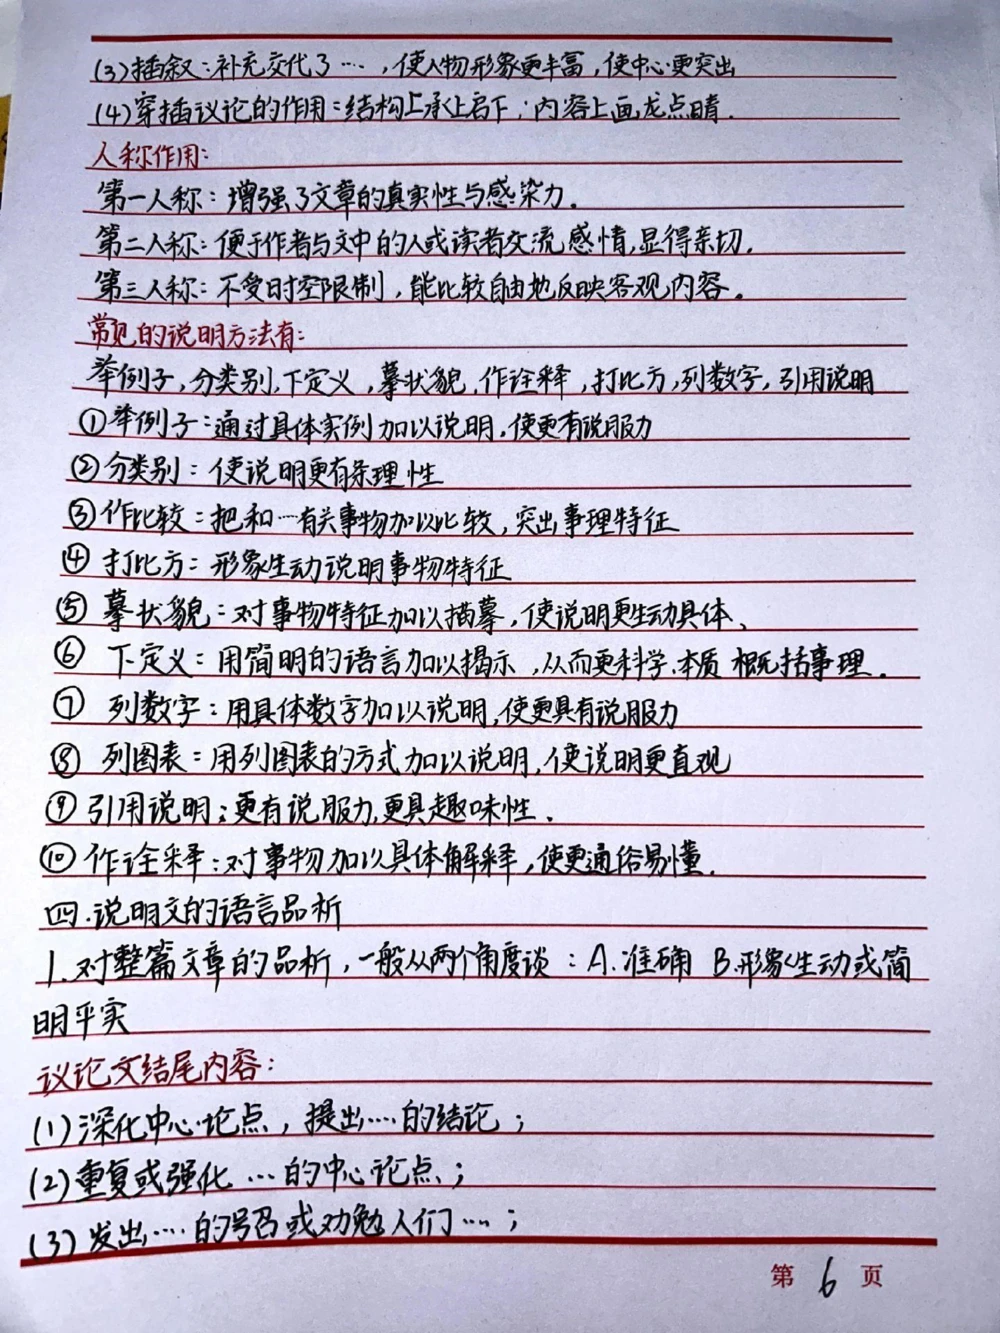 (3)插叙：补充交代了……，使人物形象更丰富，使中心更突出
(4)穿插议论的作用：结构上承上启下；内容上画龙点睛.
人称作用：
第一人称：增强了文章的真实性与感染力。
第二人称：便于作者与文中的人或读者交流感情,显得亲切.
第三人称：不受时空限制，能比较自由地反映客观内容。
常见的说明方法有：
举例子,分类别,下定义,摹状貌,作诠释,打比方,列数字,引用说明
①举例子：通过具体实例加以说明,使更有说服力
②分类别：使说明更有条理性
③作比较：把和…有关事物加以比较，突出事理特征
④打比方：形象生动说明事物特征
⑤摹状貌：对事物特征加以描摹，使说明更生动具体、
⑥下定义：用简明的语言加以揭示，从而更科学.本质 概括事理.
⑦列数字：用具体数字加以说明,使更具有说服力
⑧列图表：用列图表的方式加以说明,使说明更直观
⑨引用说明：更有说服力,更具趣味性.
⑩作诠释：对事物加以具体解释,使更通俗易懂.
四.说明文的语言品析
1.对整篇文章的品析，一般从两个角度谈：A.准确 B.形象生动或简
明平实
议论文结尾内容：
(1)深化中心论点，提出……的结论；
(2)重复或强化…的中心论点；
(3)发出……的号召或劝勉人们……；
第 6 页